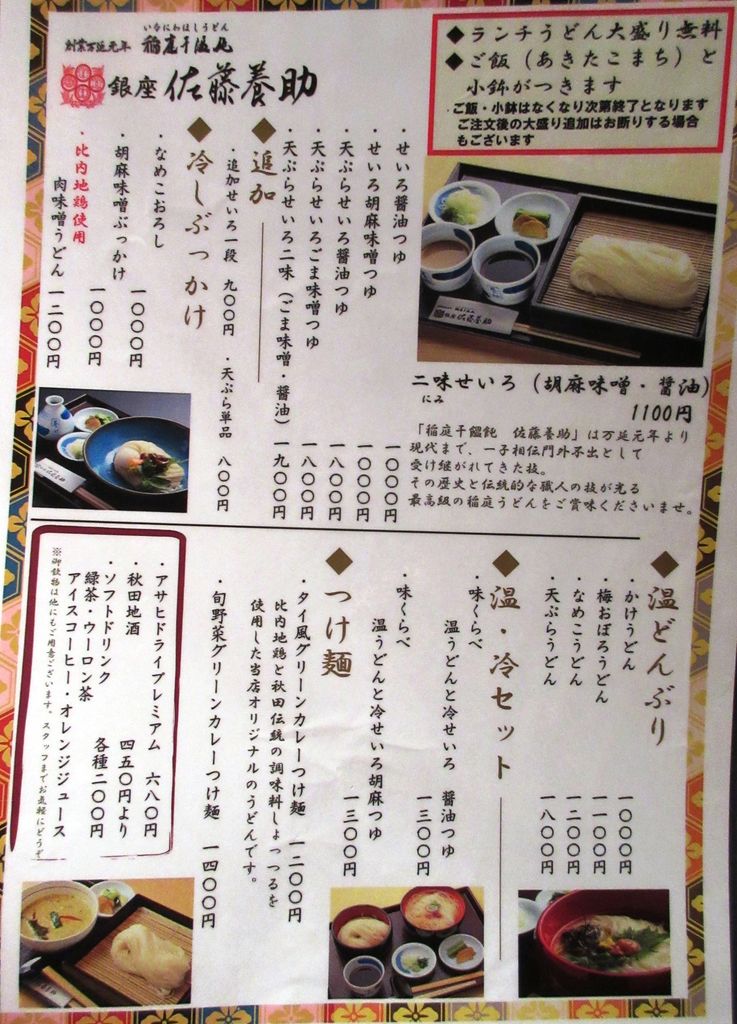 いなにわほしうどん
創業万延元年 稲庭干饂飩
銀座 佐藤養助
◆ランチうどん大盛り無料
◆ご飯（あきたこまち）と
小鉢がつきます
ご飯・小鉢はなくなり次第終了となります
ご注文後の大盛り追加はお断りする場合
もございます
銀座 佐藤養助
二味せいろ（胡麻味噌・醤油）
にみ
1100円
「稲庭干饂飩 佐藤養助」は万延元年より
現代まで、一子相伝門外不出として
受け継がれてきた技。
その歴史と伝統的な職人の技が光る
最高級の稲庭うどんをご賞味くださいませ。
・せいろ醤油つゆ 一〇〇〇円
・せいろ胡麻味噌つゆ 一〇〇〇円
・天ぷらせいろ醤油つゆ 一八〇〇円
・天ぷらせいろごま味噌つゆ 一八〇〇円
・天ぷらせいろ二味（ごま味噌・醤油） 一九〇〇円
◆追加
・追加せいろ一段 九〇〇円 ・天ぷら単品 八〇〇円
◆冷しぶっかけ
・なめこおろし 一〇〇〇円
・胡麻味噌ぶっかけ 一〇〇〇円
・比内地鶏使用
肉味噌うどん 一二〇〇円
◆温どんぶり
・かけうどん 一〇〇〇円
・梅おぼろうどん 一一〇〇円
・なめこうどん 一二〇〇円
・天ぷらうどん 一八〇〇円
◆温・冷セット
・味くらべ
温うどんと冷せいろ 醤油つゆ
一三〇〇円
・味くらべ
温うどんと冷せいろ胡麻つゆ
一三〇〇円
◆つけ麺
・タイ風グリーンカレーつけ麺 一二〇〇円
比内地鶏と秋田伝統の調味料しょっつるを
使用した当店オリジナルのうどんです。
・旬野菜グリーンカレーつけ麺 一四〇〇円
・アサヒドライプレミアム 六八〇円
・秋田地酒 四五〇円より
・ソフトドリンク 各種二〇〇円
緑茶・ウーロン茶
アイスコーヒー・オレンジジュース
※御飲物は他にもご用意ございます。スタッフまでお気軽にどうぞ